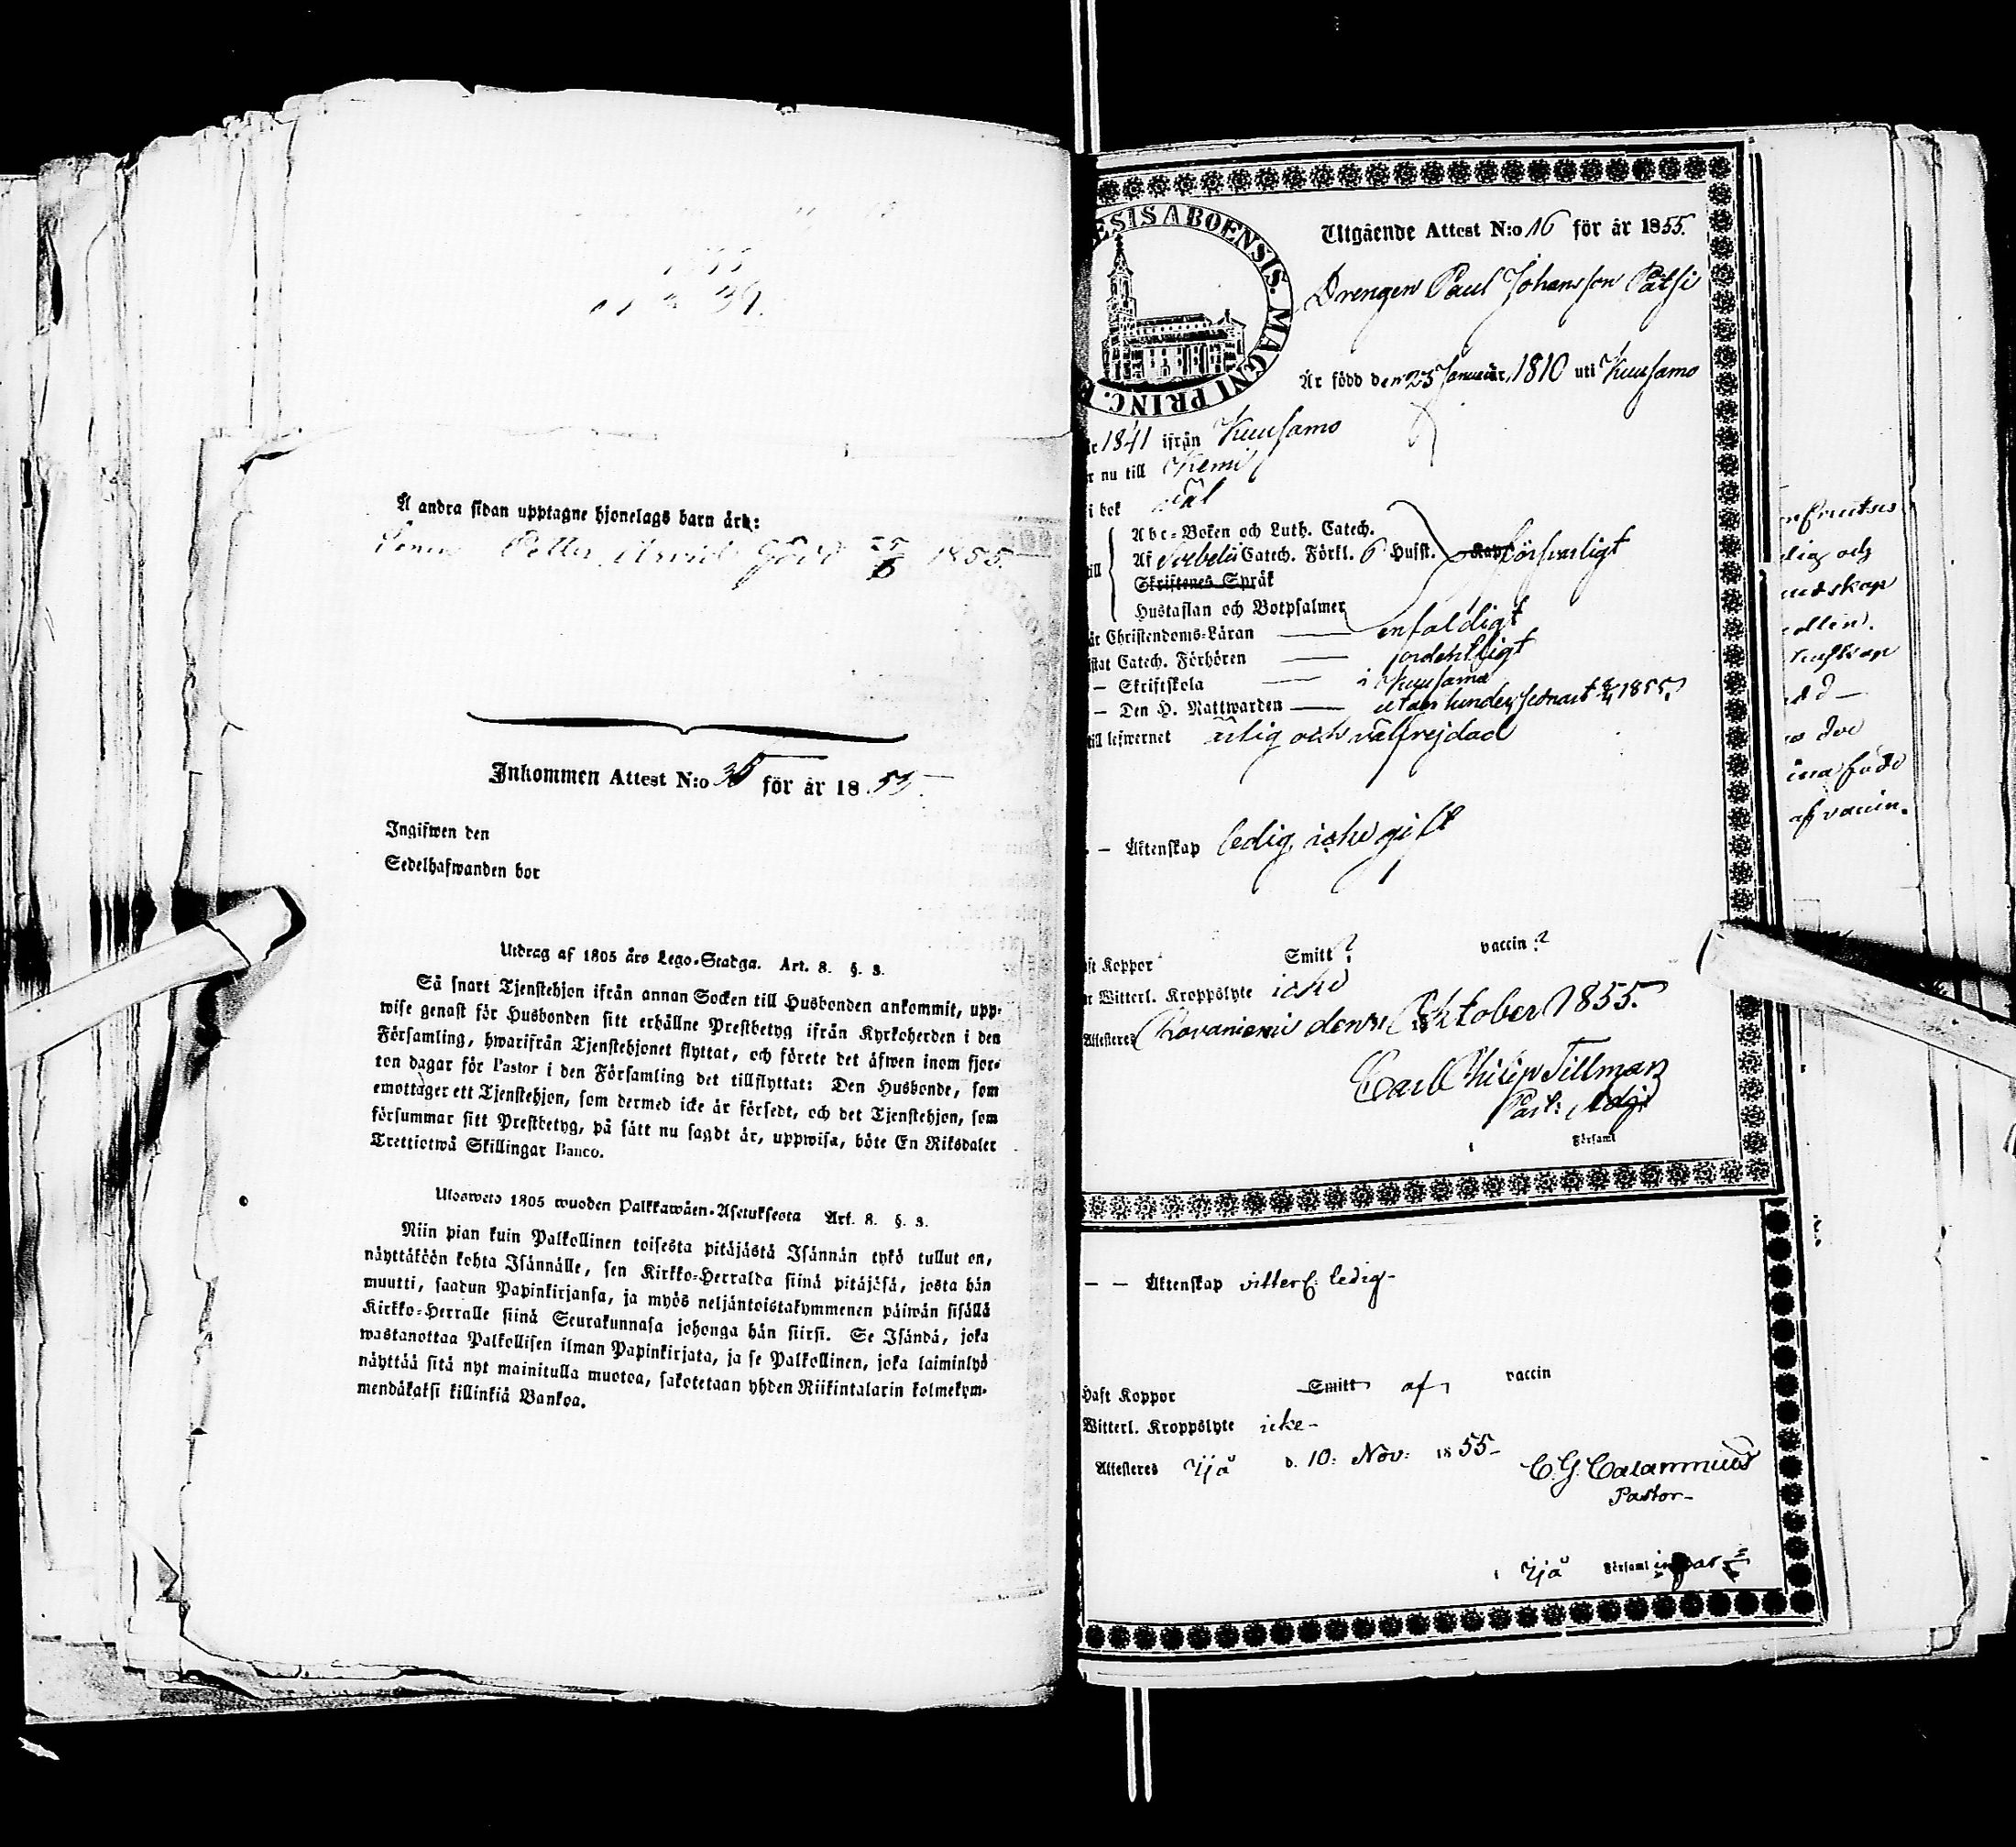 Å andra sidan upptagne hjonelags barn äro:
Petter Arvid född 25/6 1855
Inkommen Attest N:o 35 för år 1855
Ingifwen den
Sedelhafwanden bor
Utdrag af 1805 års Lego-Stadga. Art. 8. §. 3.
Så snart Tjenstehjon ifrån annan Socken till Husbonden ankommit, upp-
wise genast för Husbonden sitt erhållne Prestbetyg ifrån Kyrkoherden i den
Församling, hwarifrån Tjenstehjonet flyttat, och förete det äfwen inom fjor-
ton dagar för Pastor i den Församling det tillflyttat: Den Husbonde, som
emottager ett Tjenstehjon, som dermed icke är försedt, och det Tjenstehjon, som
försummar sitt Prestbetyg, på sätt nu sagdt är, uppwisa, böte En Riksdaler
Trettiotwå Skillingar Banco.
Ulosweto 1805 wuoden Palkkawäen-Asetuksesta Art. 8. §. 3.
Niin pian kuin Palkollinen toisesta pitäjästä Isännän tykö tullut on,
näyttäköön kohta Isännälle, sen Kirkko-Herralda siinä pitäjäsä, josta hän
muutti, saadun Papinkirjansa, ja myös neljäntoistakymmenen päiwän sisällä
Kirkko-Herralle siinä Seurakunnasa johonga hän siirsi. Se Isändä, joka
wastanottaa Palkollisen ilman Papinkirjata, ja se Palkollinen, joka laiminlyö
näyttää sitä nyt mainitulla muotoa, sakotetaan yhden Riikintalarin kolmekym-
mendäkaksi killinkiä Bankoa.
ESIS ABOENSIS. MAGNI PRINC.
Utgående Attest N:o 16 för år 1855.
Drengen Paul Johansson Pätsi
Är född den 23 Januar 1810 uti Kuusamo
1841 ifrån Kuusamo
nu till Kemi
i bok wäl
Abc-Boken och Luth. Catech.
Af Svebelii Catech. Förkl. 6 Hufst. försvarligt
Skriftenes Språk
Hustaflan och Botpsalmer
Christendoms-Läran enfaldigt
Catech. Förhören ordentligt
– Skriftskola i Kuusamo
– Den H. Nattwarden utan hinder senast 1855
till lefwernet ärlig och välfrejdad
– Äktenskap ledig, icke gift
Koppor Smitt? vaccin?
Witterl. Kroppslyte icke
Attesteras Rovaniemi den Oktober 1855.
Carl Philip Tillman
Past: Adj:
i Församl
– – Äktenskap vitterl: ledig–
Haft Koppor Smitt af vaccin
Witterl. Kroppslyte icke–
Attesteras Ijå d. 10: Nov: 1855–
C. G. Calamnius
Pastor–
i Ijå Församl
lig och
af vaccin.